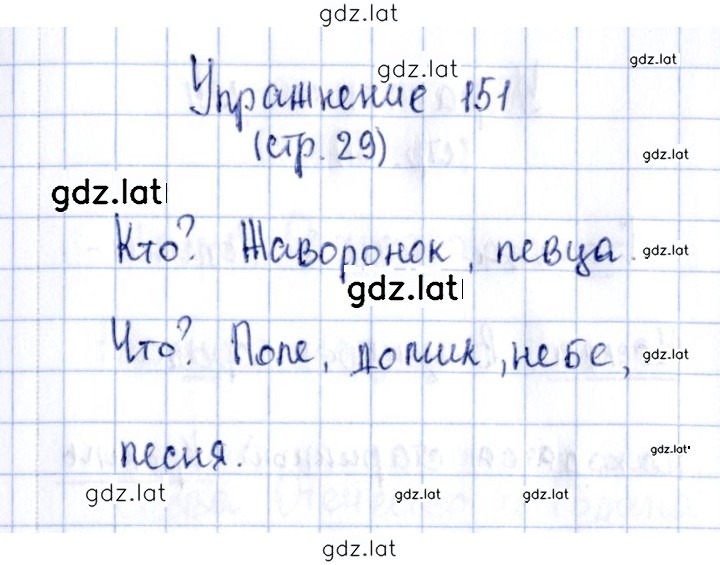 gdz.lat
gdz.lat
gdz.lat
Упражнение 151
(стр. 29)
gdz.lat
gdz.lat
Кто? Жаворонок, певца.
gdz.lat
gdz.lat
Что? Поле, домик, небе,
gdz.lat
песня.
gdz.lat
gdz.lat
gdz.lat
gdz.lat
gdz.lat